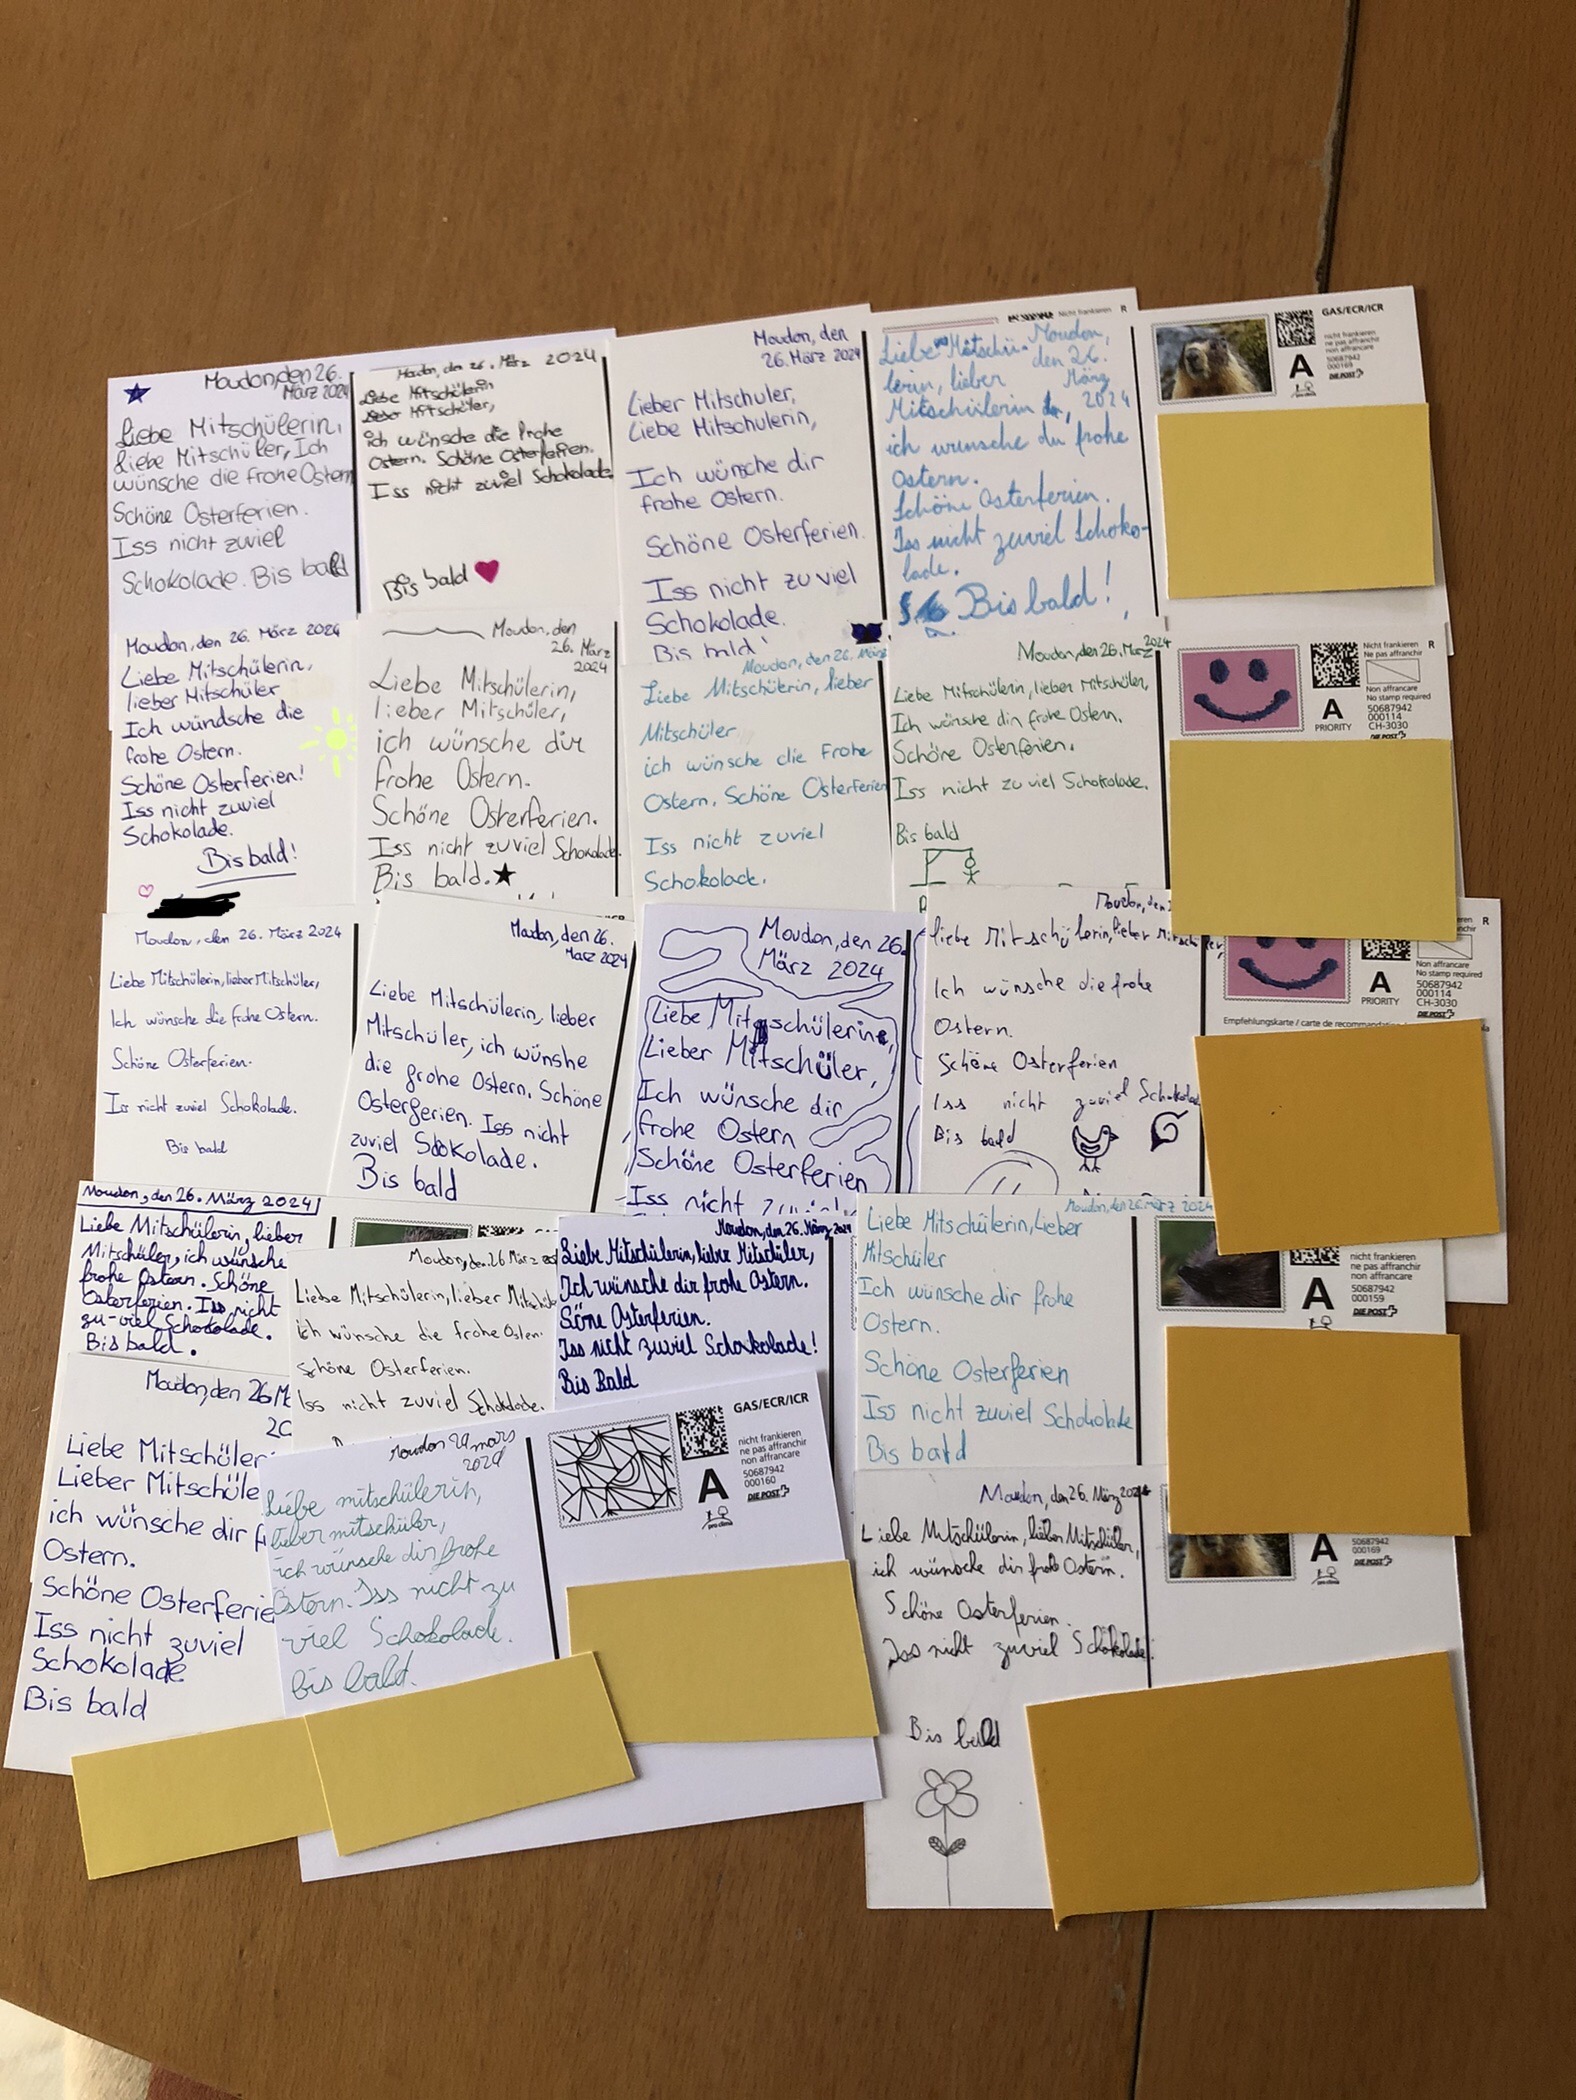 Moudon, den 26.
März 2024
Liebe Mitschülerin,
Liebe Mitschüler, Ich
wünsche die frohe Ostern
Schöne Osterferien.
Iss nicht zuviel
Schokolade. Bis bald
Moudon, den 26. März 2024
Liebe Mitschülerin
Mitschüler,
ich wünsche die frohe
Ostern. Schöne Osterferien.
Iss nicht zuviel Schokolade
Bis bald
Moudon, den
26. März 2024
Lieber Mitschuler,
Liebe Mitschulerin,
Ich wünsche dir
frohe Ostern.
Schöne Osterferien.
Iss nicht zu viel
Schokolade.
Bis bald
Nicht frankieren R
Moudon,
den 26.
März
2024
Liebe Mitschü-
lerin, lieber
Mitschülerin
ich wunsche du frohe
Ostern.
Schöne Osterferien.
Iss nicht zuviel Schoko-
lade.
Bis bald!
GAS/ECR/ICR
nicht frankieren
ne pas affranchir
non affrancare
50687942
000169
DIE POST
A
Moudon, den 26. März 2024
Liebe Mitschülerin,
lieber Mitschüler
Ich wündsche die
frohe Ostern.
Schöne Osterferien!
Iss nicht zuviel
Schokolade.
Bis bald!
Moudon, den
26. März
2024
Liebe Mitschülerin,
lieber Mitschüler,
ich wünsche dir
frohe Ostern.
Schöne Osterferien.
Iss nicht zuviel Schokolade.
Bis bald.
Moudon, den 26. März
Liebe Mitschülerin, lieber
Mitschüler
ich wünsche die Frohe
Ostern. Schöne Osterferien
Iss nicht zuviel
Schokolade.
Moudon, den 26. März 2024
Liebe Mitschülerin, lieber Mitschüler,
Ich wünsche dir frohe Ostern.
Schöne Osterferien.
Iss nicht zu viel Schokolade.
Bis bald
Nicht frankieren R
Ne pas affranchir
Non affrancare
No stamp required
50687942
000114
CH-3030
DIE POST
A
PRIORITY
Moudon, den 26. März 2024
Liebe Mitschülerin, lieber Mitschüler,
Ich wünsche die frohe Ostern.
Schöne Osterferien.
Iss nicht zuviel Schokolade.
Bis bald
Moudon, den 26.
März 2024
Liebe Mitschülerin, lieber
Mitschüler, ich wünshe
die frohe Ostern. Schöne
Osterferien. Iss nicht
zuviel Schokolade.
Bis bald
Moudon, den 26.
März 2024
Liebe Mitschülerin,
Lieber Mitschüler,
Ich wünsche dir
frohe Ostern
Schöne Osterferien
Iss nicht
Moudon, den
liebe Mitschülerin, lieber
Ich wünsche die frohe
Ostern.
Schöne Osterferien
Iss nicht zuviel Schokolade
Bis bald
R
Non affrancare
No stamp required
50687942
000114
CH-3030
DIE POST
A
PRIORITY
Empfehlungskarte / carte de
Moudon, den 26. März 2024
Liebe Mitschülerin, lieber
Mitschüler, ich wünsche
frohe Ostern. Schöne
Osterferien. Iss nicht
zu-viel Schokolade.
Bis bald.
Moudon, den 26 März
Liebe Mitschülerin, lieber
ich wünsche die frohe Osten.
Schöne Osterferien.
Iss nicht zuviel Schoklade.
Moudon, den 26. März 2024
Liebe Mitschülerin, lieber Mitschüler,
Ich wünsche dir frohe Ostern.
Söne Osterferien.
Iss nicht zuviel Schokolade!
Bis Bald
Moudon, den 26. März 2024
Liebe Mitschülerin, Lieber
Mitschüler
Ich wünsche dir frohe
Ostern.
Schöne Osterferien
Iss nicht zuviel Schokolade
Bis bald
nicht frankieren
ne pas affranchir
non affrancare
50687942
000159
DIE POST
A
Moudon, den 26
Liebe
Lieber
ich wünsche dir
Ostern.
Schöne
Iss nicht zuviel
Schokolade
Bis bald
Moudon mars
2024
Liebe mitschülerin,
lieber mitschüler,
ich wünsche dir frohe
Ostern. Iss nicht zu
viel Schokolade.
bis bald.
GAS/ECR/ICR
nicht frankieren
ne pas affranchir
non affrancare
50687942
000160
DIE POST
A
pro clima
Moudon, den 26. März 2024
Liebe Mitschülerin, lieber Mitschüler,
ich wünsche dir frohe Ostern.
Schöne Osterferien.
Iss nicht zuviel Schokolade.
Bis bald
50687942
000169
DIE POST
A
pro clima